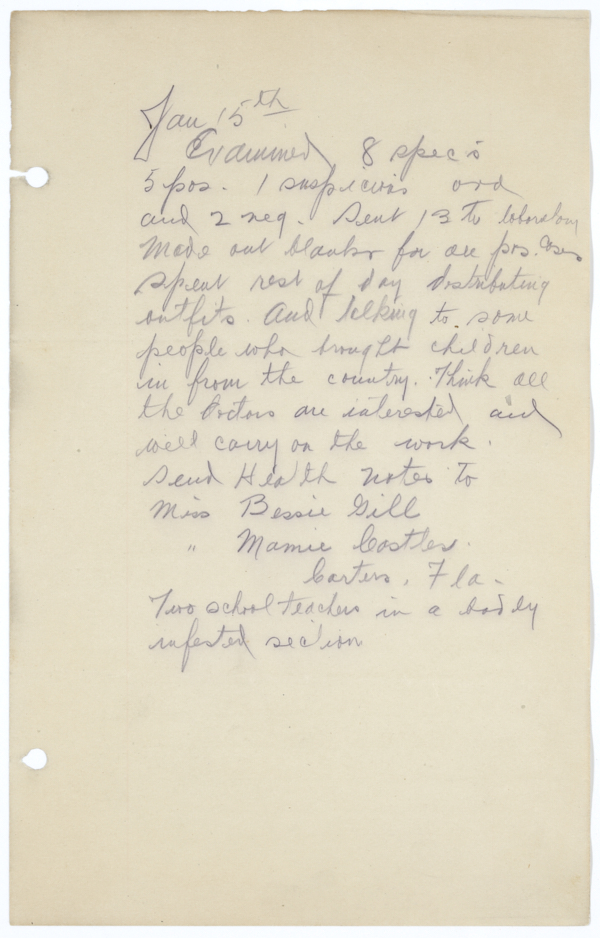 Jan 15th
Examined 8 spec's
5 pos. 1 suspicious ova
and 2 neg. Sent 13 to laboratory
Made out blanks for all pos. cases
spent rest of day distributing
outfits. And talking to some
people who brought children
in from the country. Think all
the Doctors are interested and
will carry on the work.
Send Health notes to
Miss Bessie Gill
" Mamie
Carters, Fla-
Two school teachers in a badly
infested section